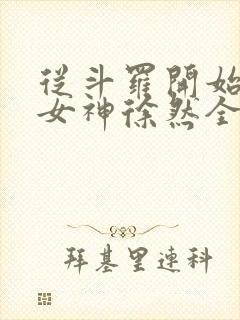 從斗羅開始
女神徐然全
拜基里連科